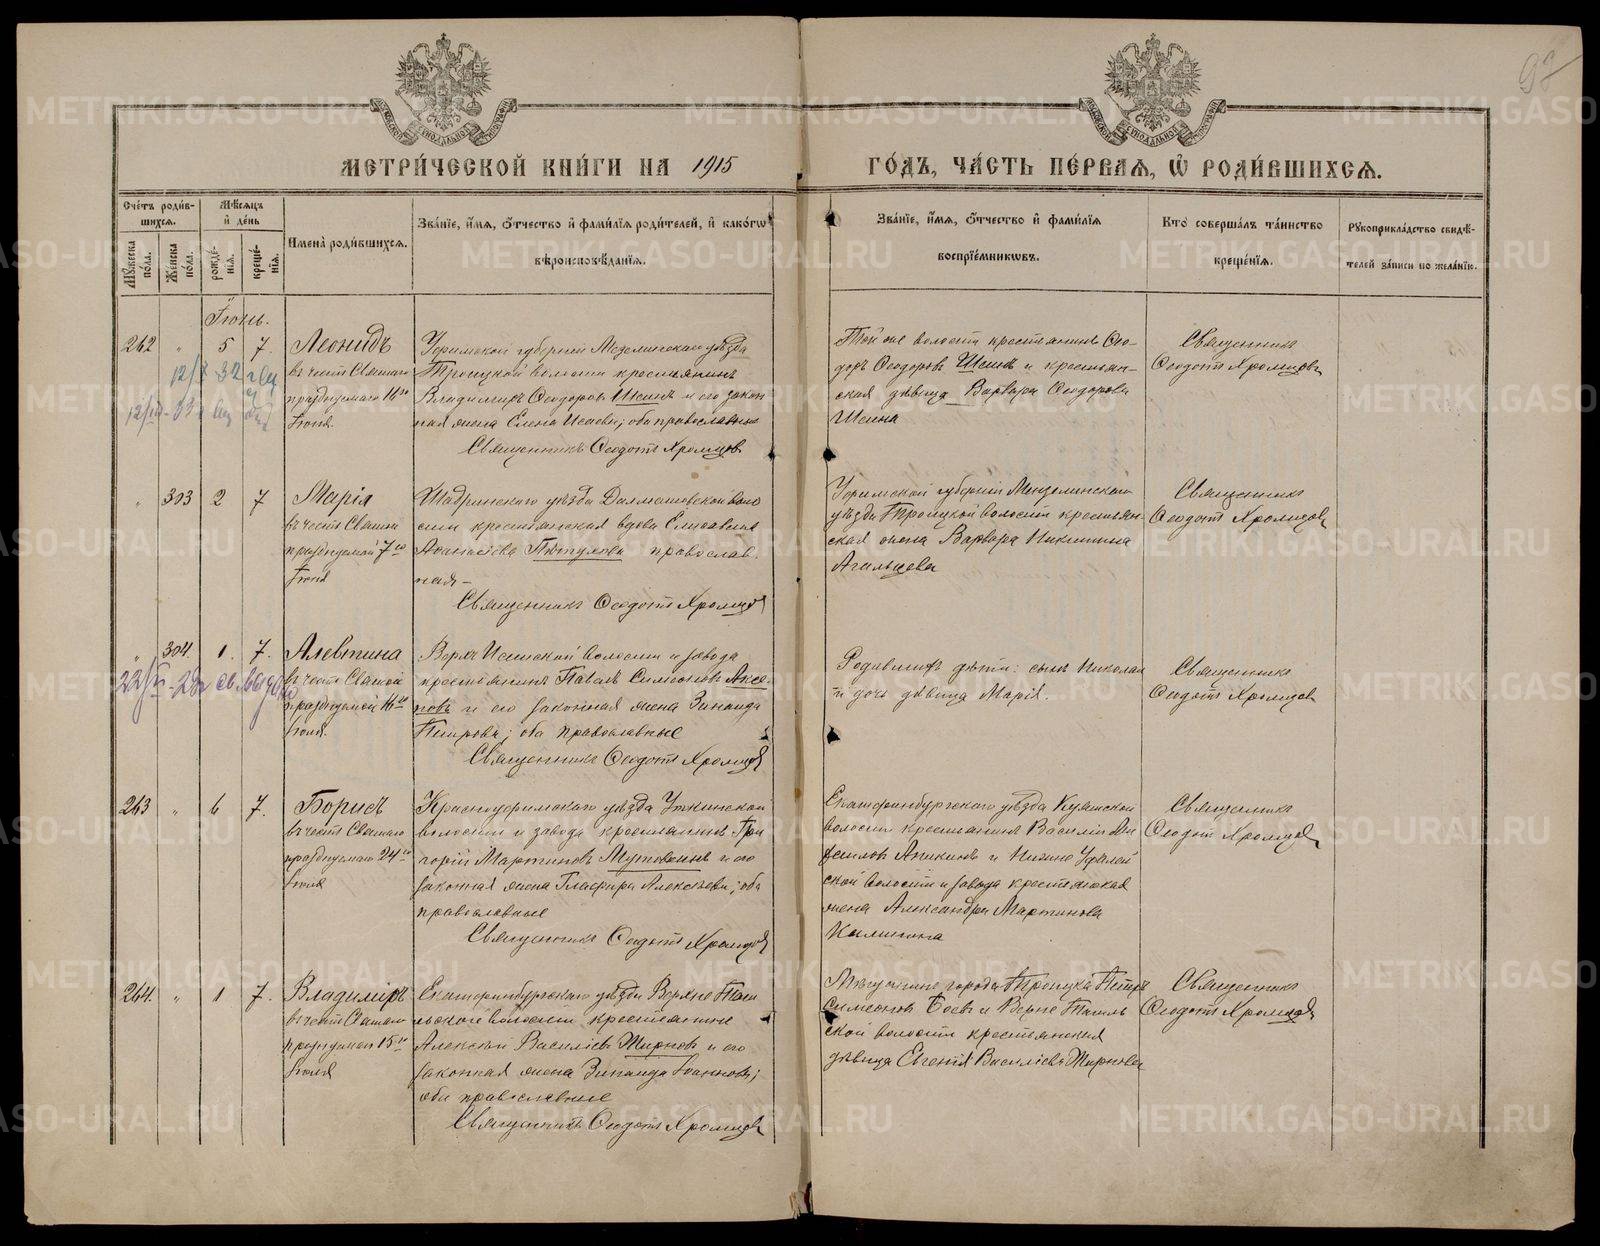 93
МЕТРИ́ЧЕСКОЙ КНИ́ГИ НА 1915
ГО́ДЪ, ЧА́СТЬ ПЕ́РВАЯ, Ѡ҆ РОДИ́ВШИХСЯ.
Сче́тъ роди́в-
шихся.
Мѣ́сяцъ
и҆ де́нь
Мꙋ́жеска по́ла.
Же́нска по́ла.
рожде́-
нїя.
креще́-
нїя.
И҆мена̀ роди́вшихся.
Зва́нїе, и҆́мя, ѻ҆́тчество и҆ фами́лїя роди́телей, и҆ како́гѡ
вѣроисповѣ́данїя.
Зва́нїе, и҆́мя, ѻ҆́тчество и҆ фами́лїя
воспрїе́мникѡвъ.
Кто̀ соверша́лъ та́инство
креще́нїя.
Рꙋкоприкла́дство свидѣ́-
телей за́писи по жела́нїю.
Іюнь.
262 " 5 7.
Леонидъ
въ честь Святаго
празднуемаго 16го
Іюня.
Уфимской губерніи Мензелинскаго уѣзда
Троицкой волости крестьянинъ
Владимиръ Ѳеодоровъ Шеинъ и его закон
ная жена Елена Исаева; оба православные
Священникъ Ѳеодотъ Хромцовъ
Той же волости крестьянинъ Ѳео-
доръ Ѳеодоровъ Шеинъ и крестьян-
ская дѣвица Варвара Ѳеодорова
Шеина
Священникъ
Ѳеодотъ Хромцовъ
" 303 2 7
Марія
въ честь Святыя
празднуемой 7го
Іюня
Шадринскаго уѣзда Далматовской воло
сти крестьянская вдова Елисавета
Аѳанасіева православ.
ная
Священникъ Ѳеодотъ Хромцовъ
Уфимской губерніи Мензелинскаго
уѣзда Троицкой волости крестьян-
ская жена Варвара Никитина
Агальцева
Священникъ
Ѳеодотъ Хромцовъ
" 304 1. 7.
Алевтина
въ честь Святой
празднуемой 16го
Іюля.
Верхъ Исетской волости и завода
крестьянинъ Павелъ Симеоновъ Аксе
новъ и его законная жена Зинаида
Петрова; оба православные
Священникъ Ѳеодотъ Хромцовъ
дѣти: сынъ Николай
и дочь дѣвица Марія.
Священникъ
Ѳеодотъ Хромцовъ
263 " 6 7.
Борисъ
въ честь Святаго
празднуемаго 24го
Іюля
Красноуфимскаго уѣзда Уткинской
волости и завода крестьянинъ Гри
горій Мартиновъ и его
законная жена Глафира Алексѣева; оба
православные
Священникъ Ѳеодотъ Хромцовъ
Екатеринбургскаго уѣзда Куяшской
волости крестьянинъ Василій
Аникинъ и Нижне Уфалей
ской волости и завода крестьянская
жена Александра Мартинова
Калинина
Священникъ
Ѳеодотъ Хромцовъ
264. " 1 7.
Владиміръ
въ честь Святаго
празднуемаго 15го
Іюля
Екатеринбургскаго уѣзда Верхне Таги
льской волости крестьянинъ
Алексѣй Василіевъ Жирновъ и его
законная жена Зинаида Іоаннова;
оба православные
Священникъ Ѳеодотъ Хромцовъ
Мѣщанинъ города Троицка Петръ
Симеоновъ Боевъ и Верхне Тагиль
ской волости крестьянская
дѣвица Евгенія Василіева Жирнова
Священникъ
Ѳеодотъ Хромцовъ
METRIKI.GASO-URAL.RU